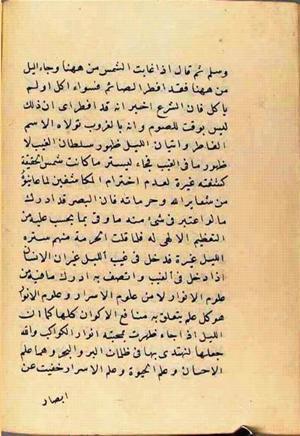 وسلم ثم قال اذا غابت الشمس من ههنا وجاء الليل
من ههنا فقد افطر الصائم فسواء اكل او لم
ياكل فان الشرع اخبر انه قد افطر اى ان ذلك
ليس بوقت للصوم وانه بالغروب تولاه الاسم
الفاطر واتيان الليل ظهور سلطان الغيب لا
ظهور ما فى الغيب فجاء ليستر ما كانت شمس الحقيقة
كشفته غيرة لعدم احترام المكاشفين لما عاينوه
من شعاير الله وحرماته فان البصر قد ادرك
ما لو اعتبر فى شئ منه ما وفى بما يجب عليه من
التعظيم الالهى له فلما قلت الحرمة منهم ستره
الليل غيرة فدخل فى غيب الليل غير ان الانسان
اذا دخل فى الغيب واتصف به ادرك ما فيه من
علوم الانوار لا من علوم الاسرار وعلوم الانوار
هو كل علم يتعلق به منافع الاكوان كلها كما ان
الليل اذا جاء ظهرت بمجيئه انوار الكواكب والله
جعلها لنهتدى بها فى ظلمات البر والبحر وهما علم
الاحسان وعلم الحيوة وعلم الاسرار خفيت عن
ابصار